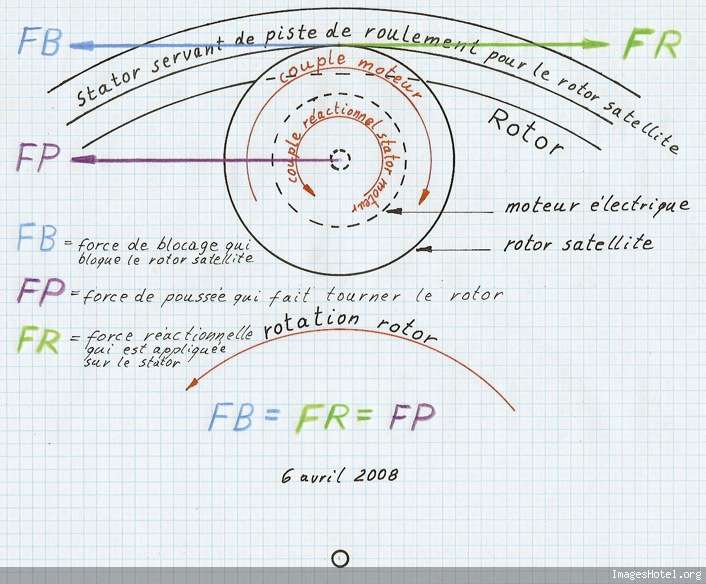 FB
FR
stator servant de piste de roulement pour le rotor satellite
couple moteur
Rotor
couple réactionnel stator moteur
FP
moteur électrique
rotor satellite
FB = force de blocage qui
bloque le rotor satellite
FP = force de poussée qui fait tourner le rotor
FR = force réactionnelle
qui est appliquée
sur le stator
rotation rotor
FB = FR = FP
6 avril 2008
ImagesHotel.org